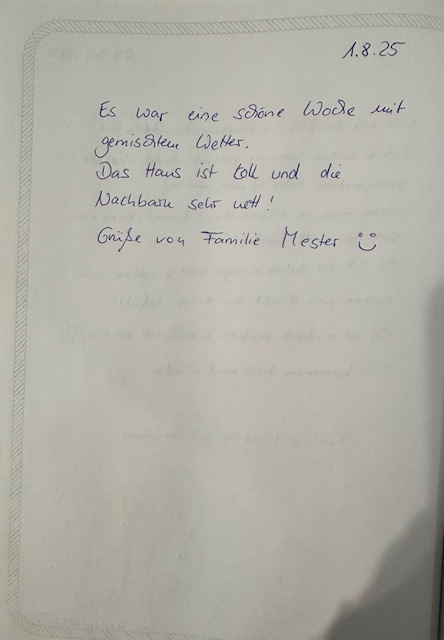 1.8.25
Es war eine schöne Woche mit
gemischtem Wetter.
Das Haus ist toll und die
Nachbarn sehr nett!
Grüße von Familie Mester